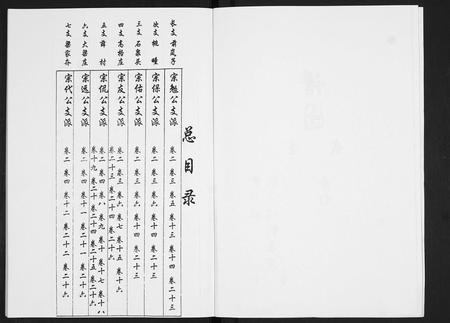 总目录
长支 前岚子 宗勉公支派 卷二 卷三 卷五 卷十三 卷十四 卷二十三
次支 桃 疃 宗保公支派 卷二 卷三 卷六 卷十四 卷二十三
三支 石泉头 宗佑公支派 卷二 卷三 卷六 卷十四 卷二十三
四支 高格庄 宗友公支派 卷二 卷三 卷六 卷七 卷十五 卷十六
卷二十三 卷二十四 卷二十六
五支 薛 村 宗侃公支派 卷二 卷四 卷八 卷九 卷十 卷十七 卷十八
卷十九 卷二十 卷二十四 卷二十五 卷二十六
六支 大梁庄 宗远公支派 卷二 卷四 卷十一 卷二十一 卷二十六
七支 梁家夼 宗代公支派 卷二 卷四 卷十二 卷二十二 卷二十六